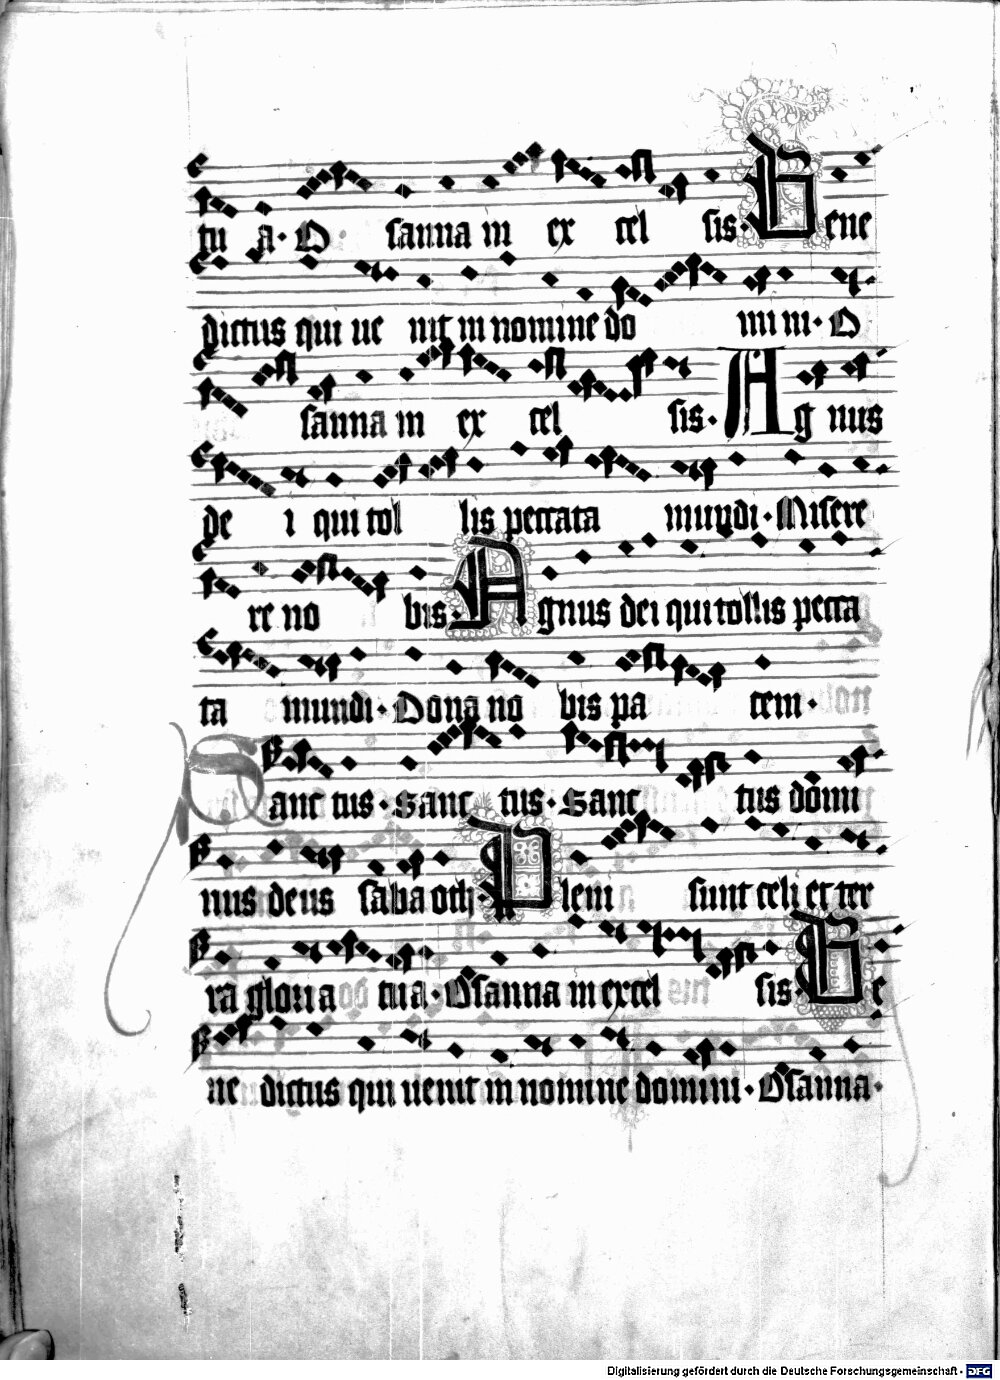 tu a· O sanna in ex cel sis· Bene
dictus qui ue nit in nomine do mi ni· O
sanna in ex cel sis· Ag nus
de i qui tol lis peccata mundi· Misere
re no bis· Agnus dei qui tollis pecca
ta mundi· Dona no bis pa cem·
Sanc tus· Sanc tus· Sanc tus domi
nus deus saba oth· Pleni sunt celi et ter
ra gloria tua· Osanna in excel sis· Be
ne dictus qui uenit in nomine domini· Osanna·
Digitalisierung gefördert durch die Deutsche Forschungsgemeinschaft - DFG